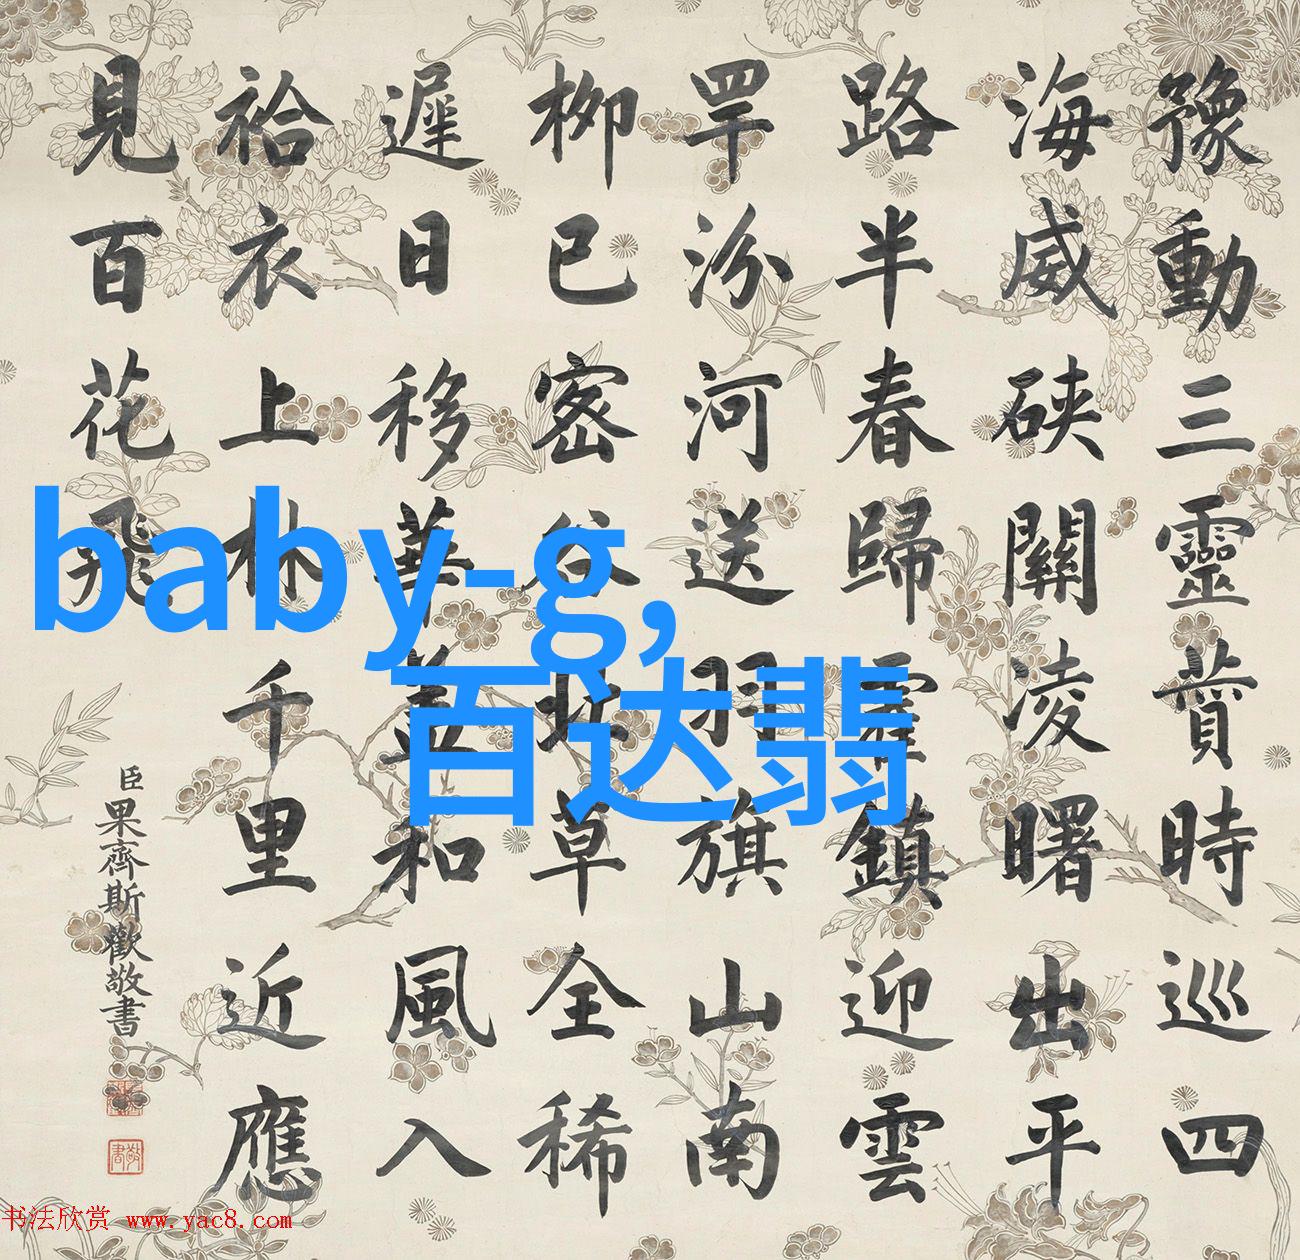 豫動三靈賁時巡四
海威硤關凌曙出平
路半春歸霍鎮迎雲
罕汾河送羽旗山南
柳已密谷北草全稀
遲日移華蓋和風入
袷衣上林千里近應
見百花飛
臣果齊斯歡敬書
敬書
baby-g,
百达翡
书法欣赏 www.yac8.com